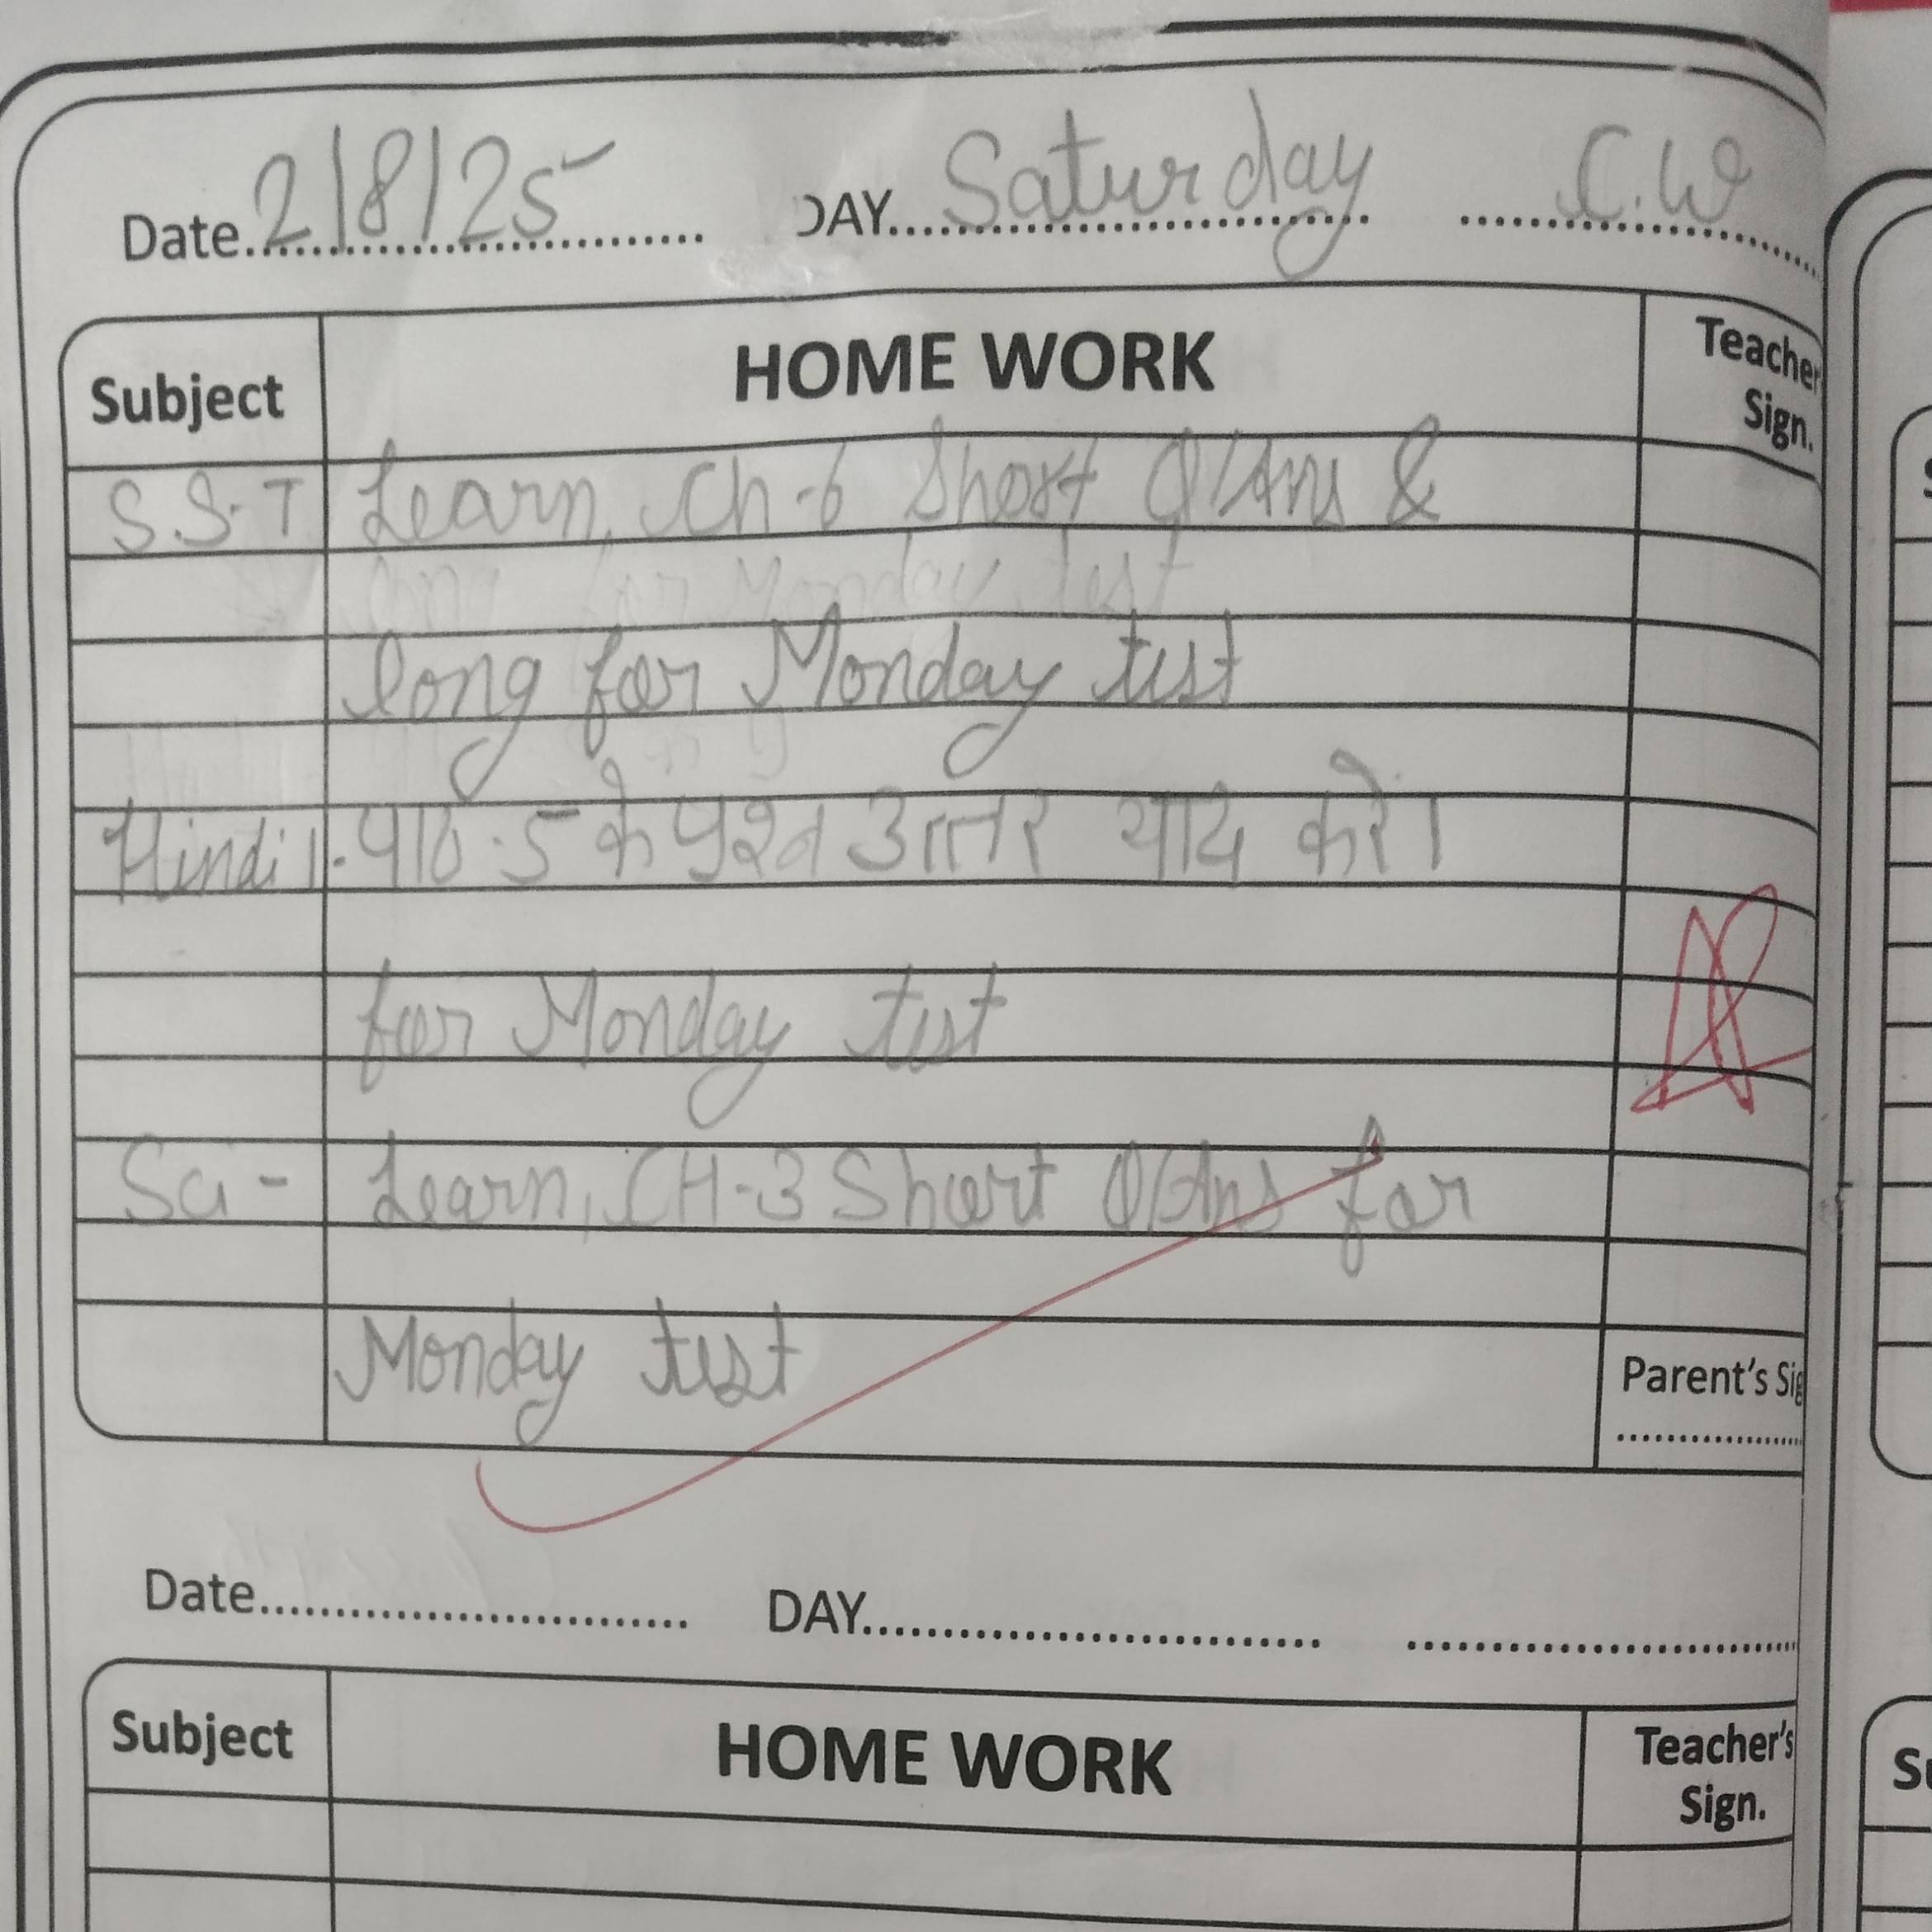 Date 2/8/25 DAY Saturday C.W
Subject HOME WORK Teacher Sign.
S.S.T Learn, Ch-6 Short Q/Ans &
long for Monday test
long for Monday test
Hindi 1. पाठ-5 के प्रश्न उत्तर याद करे।
for Monday test
Sci- Learn, CH-3 Short Q/Ans for
Monday test
Parent's Sig
Date DAY
Subject HOME WORK Teacher's Sign.